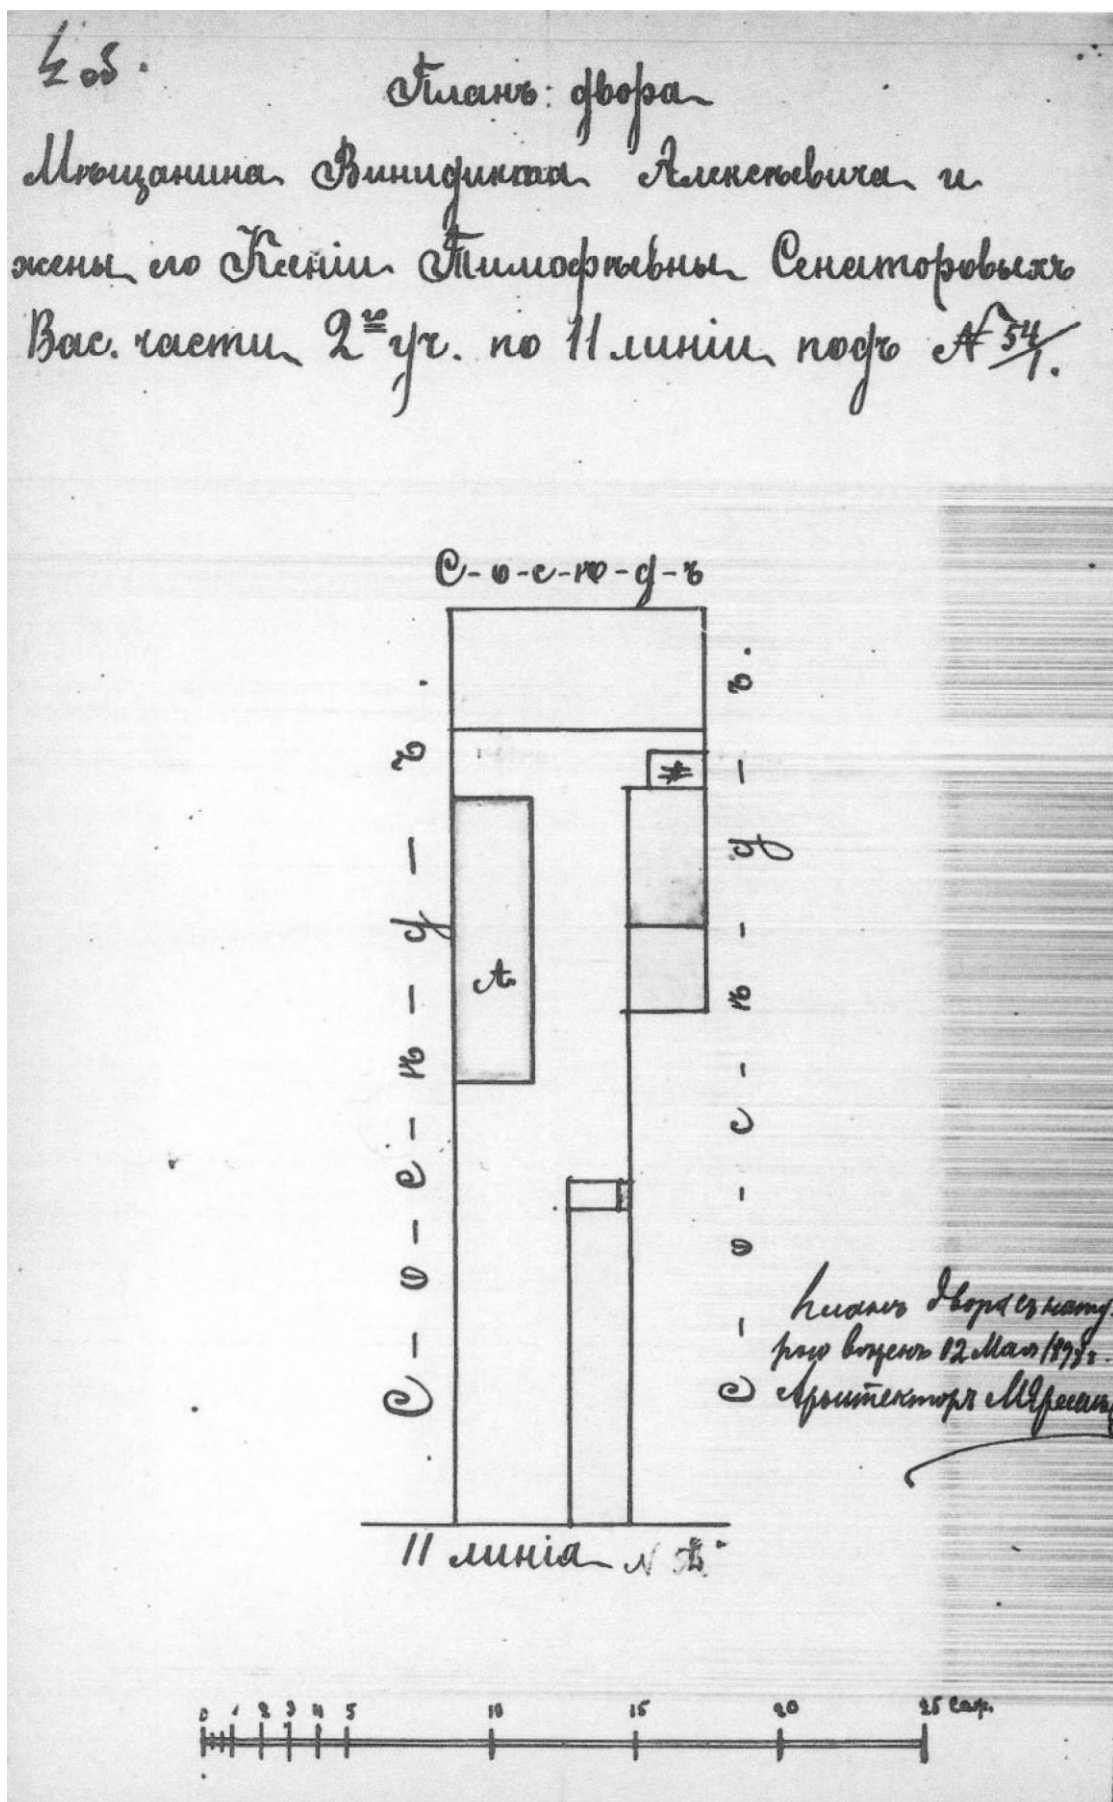 Планъ: двора
Мѣщанина Винидикта Алексѣевича и
жены его Ксеніи Тимофѣевны Сенаторовыхъ
Вас. части 2го уч. по 11 линіи подъ № 54/1.
С-о-с-ѣ-д-ъ
С-о-с-ѣ-д-ъ.
С-о-с-ѣ-д-ъ.
А.
Планъ двора съ нату-
рою вѣренъ 12 Мая 1898 г.
Архитекторъ
11 линія N
0 1 2 3 4 5 10 15 20 25 саж.